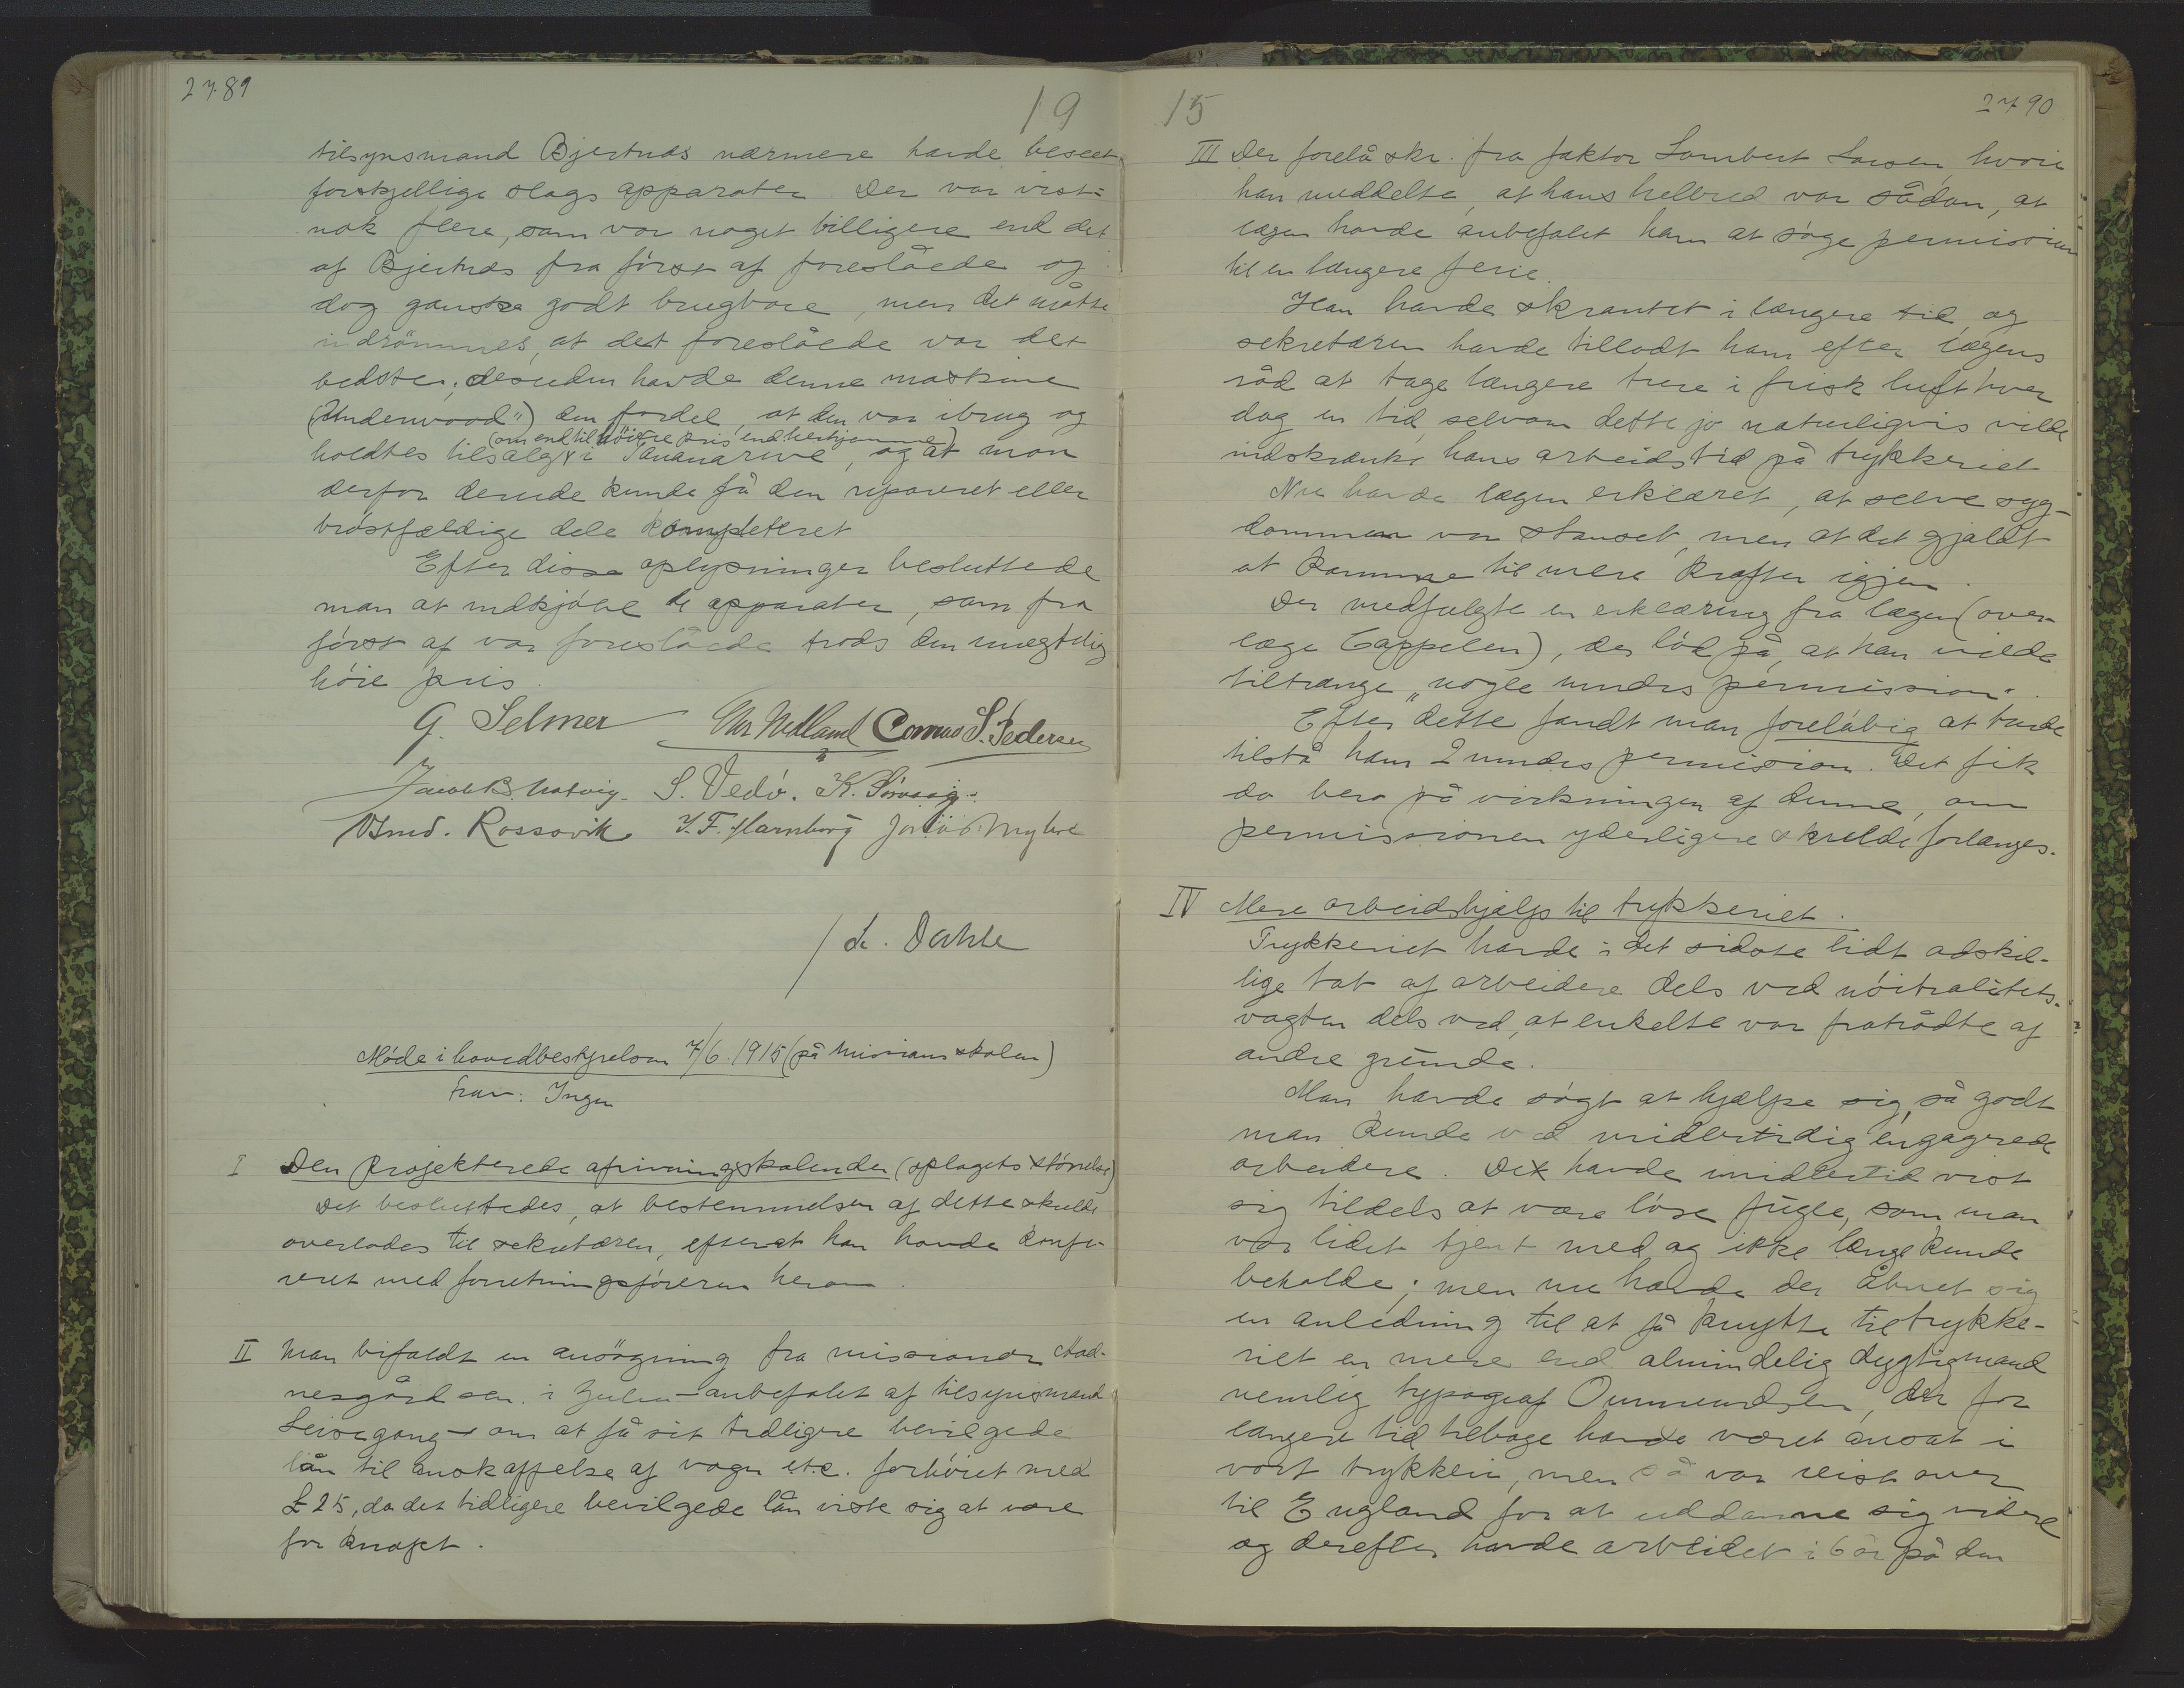 2789
19
tilsynsmand Bjertnæs nærmere havde beseet
forskjellige slags apparater Der var vist-
nok flere, som var noget billigere end det
af Bjertnæs fra först af foreslåede og
dog ganske godt brugbare, men det måtte
indrömmes, at det foreslåede var det
bedste; desuden havde denne maskine
(Underwood") den fordel at den var ibrug og
(om end til höiere pris end herhjemme)
holdtes tilsalgs i Tananarive, og at man
derfor derude kunde få den repareret eller
bröstfældige dele kompleteret
Efter disse oplysninger besluttede
man at indkjöbe de apparater, som fra
först af var foreslåede trods den mægtig
höie pris.
G. Selmer Chr Nedland Conrad S. Pedersen
Jacob B. Natvig. S. Vedö. K. Sörvaag.
Asmd. Rossavik J. F. Hamborg Jonas Myhre
/ L. Dahle
Möde i hovedbestyrelsen 7/6 1915 (på missionsskolen)
Frav: Ingen
I Den projekterede afrivningskalender (oplagets störrelse)
Det besluttedes, at bestemmelsen af dette skulde
overlades til sekretæren, efterat han havde konfe-
reret med forretningsföreren herom.
II Man bifaldt en ansögning fra missionær Aad-
nesgård sen. i Zulu – anbefalet af tilsynsmand
Leisegang – om at få sit tidligere bevilgede
lån til anskaffelse af vogn etc. forhöiet med
£ 25, da det tidligere bevilgede lån viste sig at være
for knapt.
15
2790
III Der forelå skr. fra faktor Lambert Larsen, hvori
han meddelte, at hans helbred var sådan, at
lægen havde anbefalet ham at söge permission
til en længere ferie.
Han havde skrantet i længere tid og
sekretæren havde tilladt ham efter lægens
råd at tage længere ture i frisk luft hver
dag en tid, selvom dette jo naturligvis vilde
indskrænke hans arbeidstid på trykkeriet
Nu havde lægen erklæret, at selve syg-
dommen var stanset, men at det gjaldt
at komme til mere kræfter igjen.
Der medfulgte en erklæring fra lægen (over-
læge Cappelen), der löd på, at han vilde
tiltrænge „nogle mndrs permission".
Efter dette fandt man forelöbig at burde
tilstå ham 2 mndrs permission. Det fik
da bero på virkningen af denne, om
permissionen yderligere skulde forlænges.
IV Mere arbeidshjælp til trykkeriet.
Trykkeriet havde i det sidste lidt adskil-
lige tab af arbeidere dels ved nöitralitets-
vagten dels ved, at enkelte var fratrådte af
andre grunde.
Man havde sögt at hjælpe sig, så godt
man kunde ved midlertidig engagerede
arbeidere. Det havde imidlertid vist
sig tildels at være löse fugle, som man
var lidet tjent med og ikke længe kunde
beholde; men nu havde der åbnet sig
en anledning til at få knytte til trykke-
riet en mere end almindelig dygtig mand
nemlig typograf Ommundsen, der for
længere tid tilbage havde været ansat i
vort trykkeri, men så var reist over
til England for at uddanne sig videre
og derefter havde arbeidet i 6 år på den